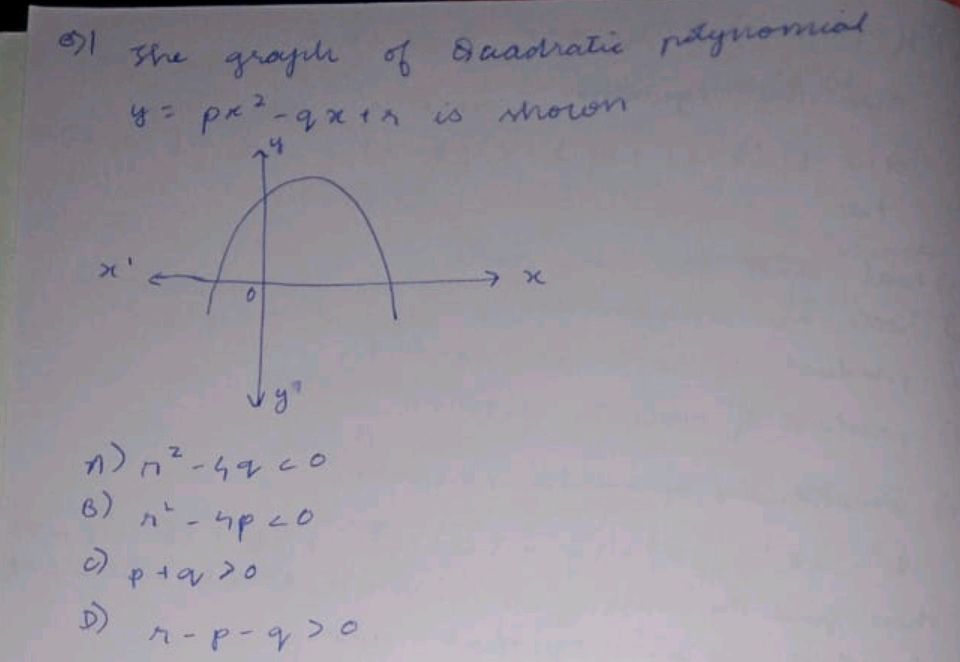 Q)1 The graph of Quadratic polynomial
y = px² - qx + r is shown
y
x'
x
0
y'
A) r² - 4q < 0
B) r² - 4p < 0
C) p + q > 0
D) r - p - q > 0